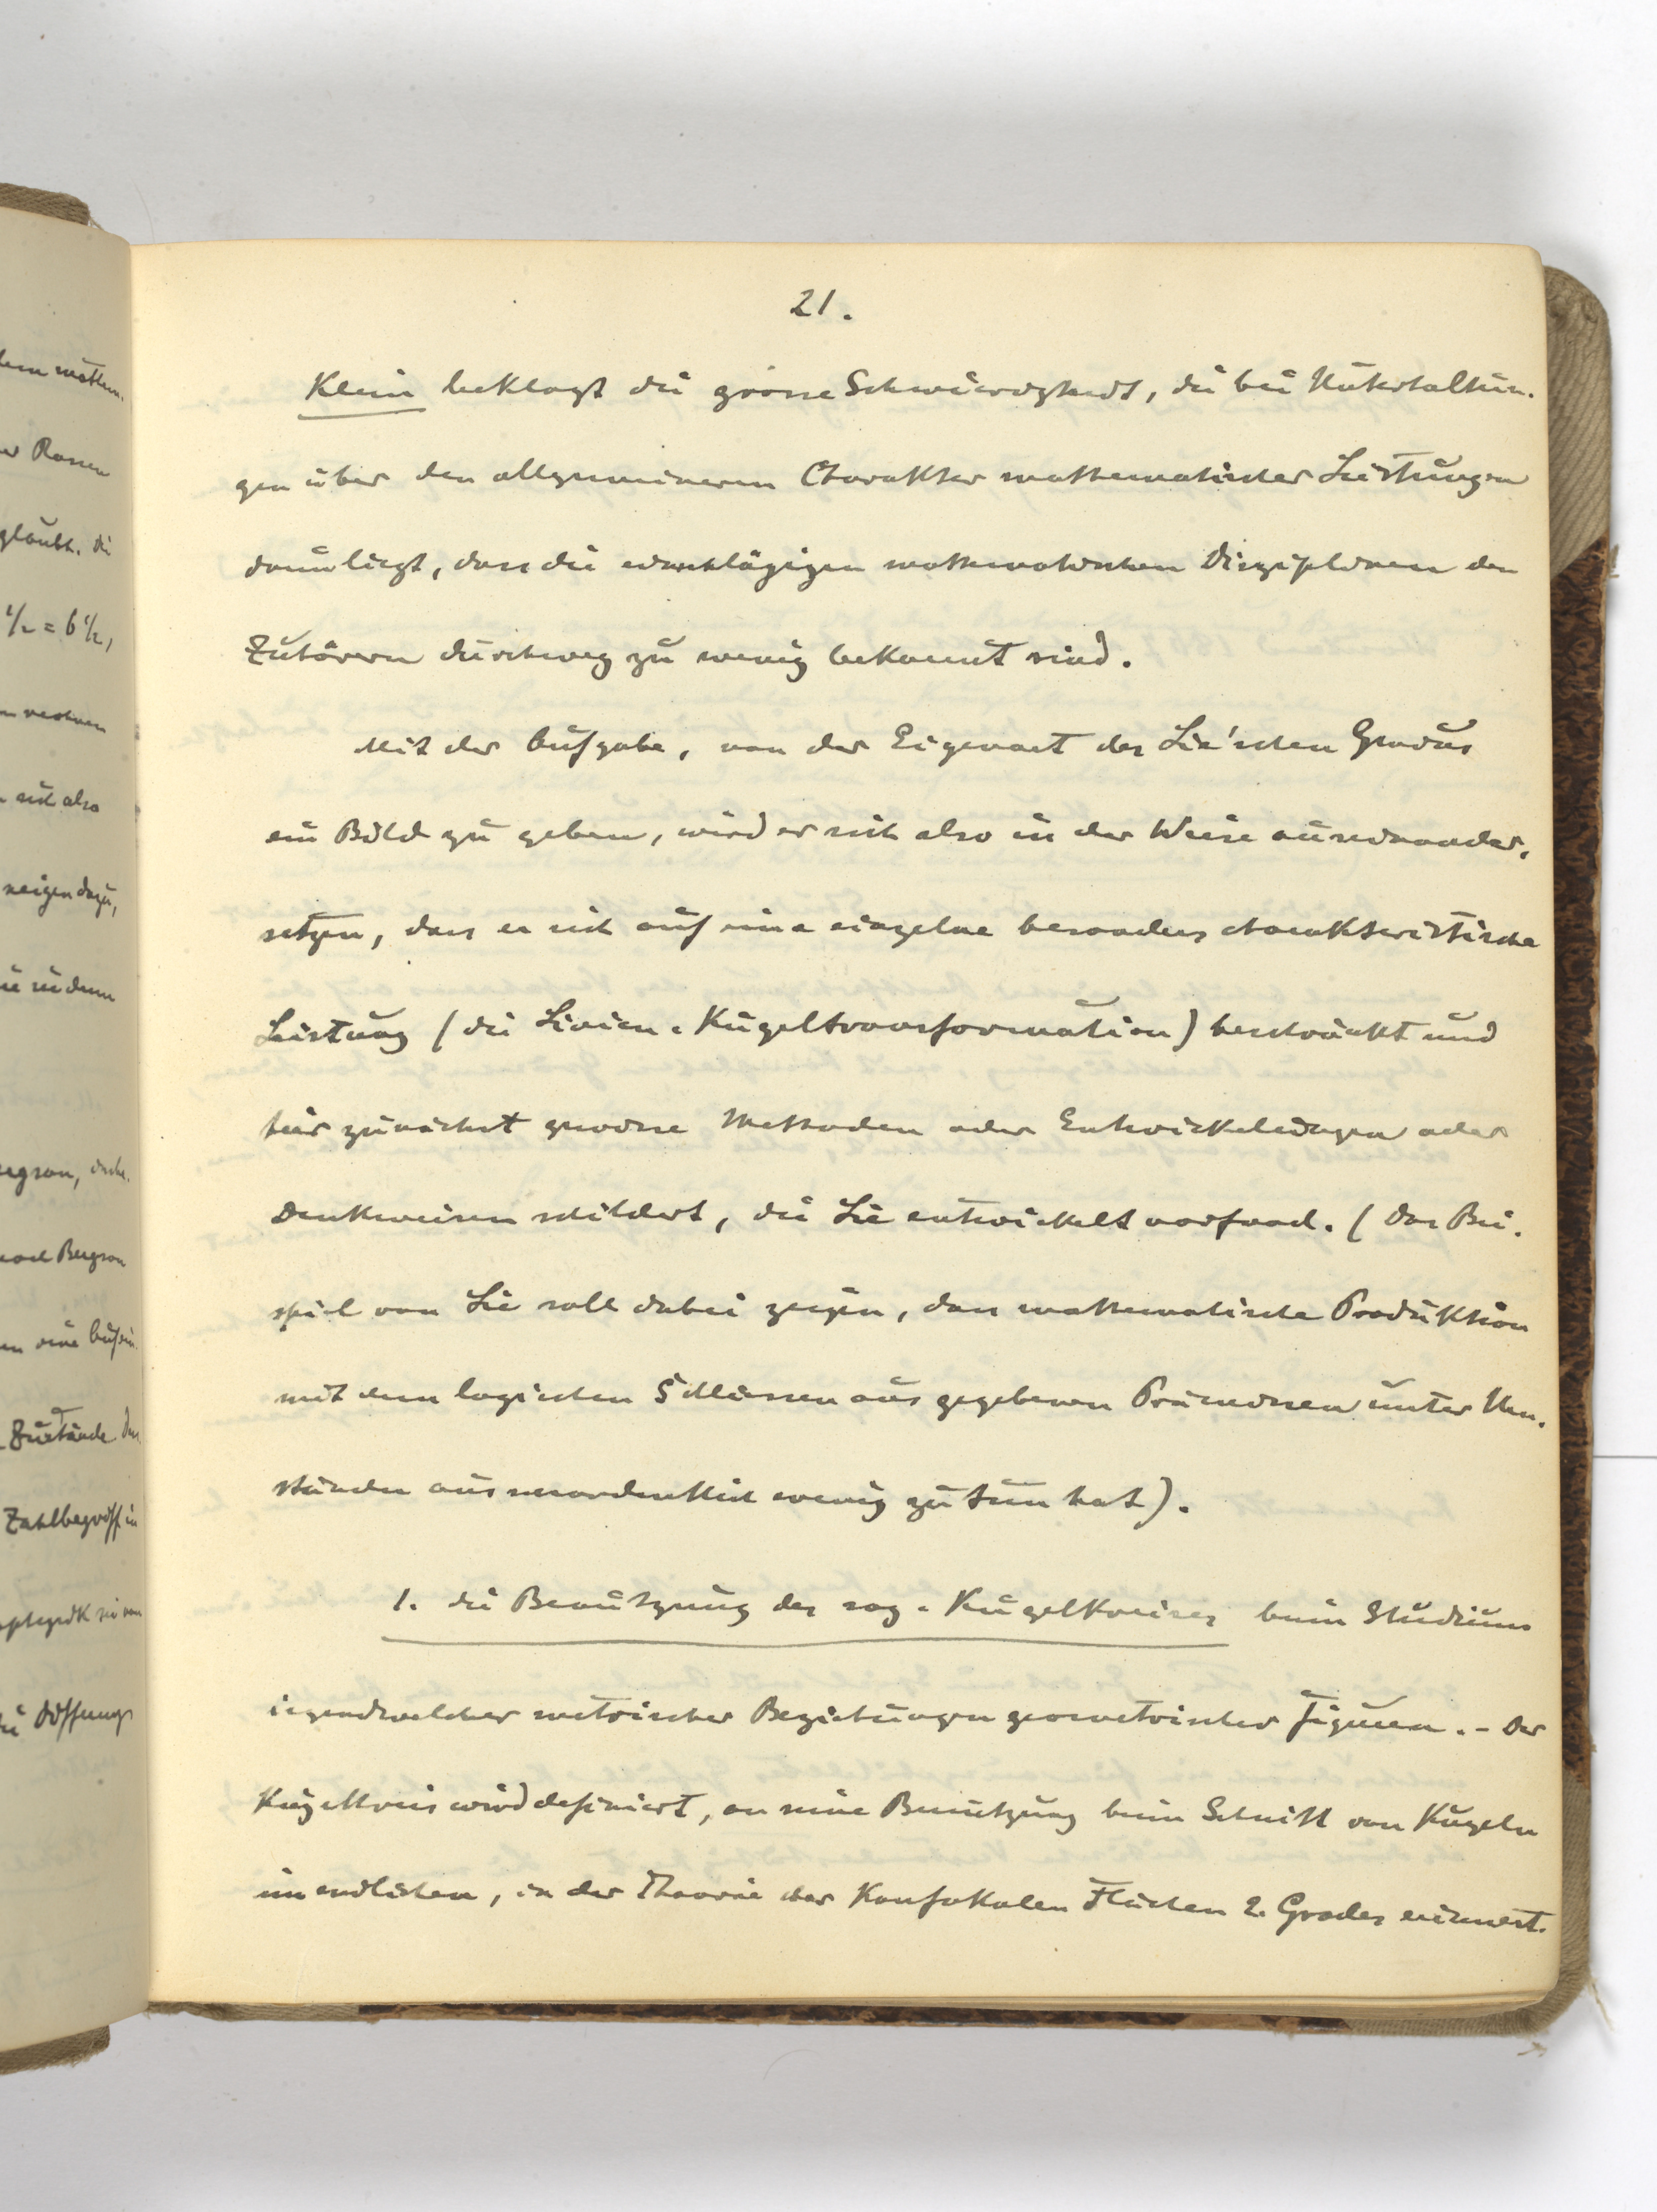 21.
Klein beklagt die grosse Schwierigkeit, die bei Unterhaltun-
gen über den allgemeineren Charakter mathematischer Leistungen
darin liegt, dass die einschlägigen mathematischen Disziplinen den
Zuhörern durchweg zu wenig bekannt sind.
Mit der Aufgabe, von der Eigenart des Lie'schen Genius
ein Bild zu geben, wird er sich also in der Weise auseinander-
setzen, dass er sich auf eine einzelne besonders charakteristische
Leistung (die Linien-Kugeltransformation) beschränkt und
hier zunächst gewisse Methoden oder Entwickelungen oder
Denkweisen schildert, die Lie entwickelt vorfand. (Das Bei-
spiel von Lie soll dabei zeigen, dass mathematische Produktion
mit dem logischen Schliessen aus gegebenen Prämissen unter Um-
ständen ausserordentlich wenig zu tun hat).
1. Die Benützung des sog. Kugelkreises beim Studium
irgendwelcher metrischer Beziehungen geometrischer Figuren. - Der
Kugelkreis wird definiert, an seine Benützung beim Schnitt von Kugeln
im endlichen, in der Theorie der Konfokalen Flächen 2. Grades erinnert.
dem mathem.
er Rassen
glaubt. Die
1/2 = 6 1/2,
n rechnen
sich also
neigen dazu,
sie in dem
Bergson,
nach Bergson
en eine
Zustände. Das
Zahlbegriff in